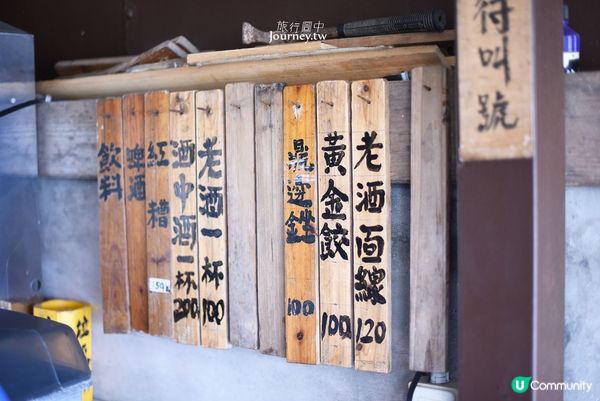 旅行圖中
Journey.tw
待叫號
老酒面線 120
黃金餃 100
鼎邊銼 100
老酒一杯 100
酒中酒一杯 200
紅糟
啤酒
飲料
U Community